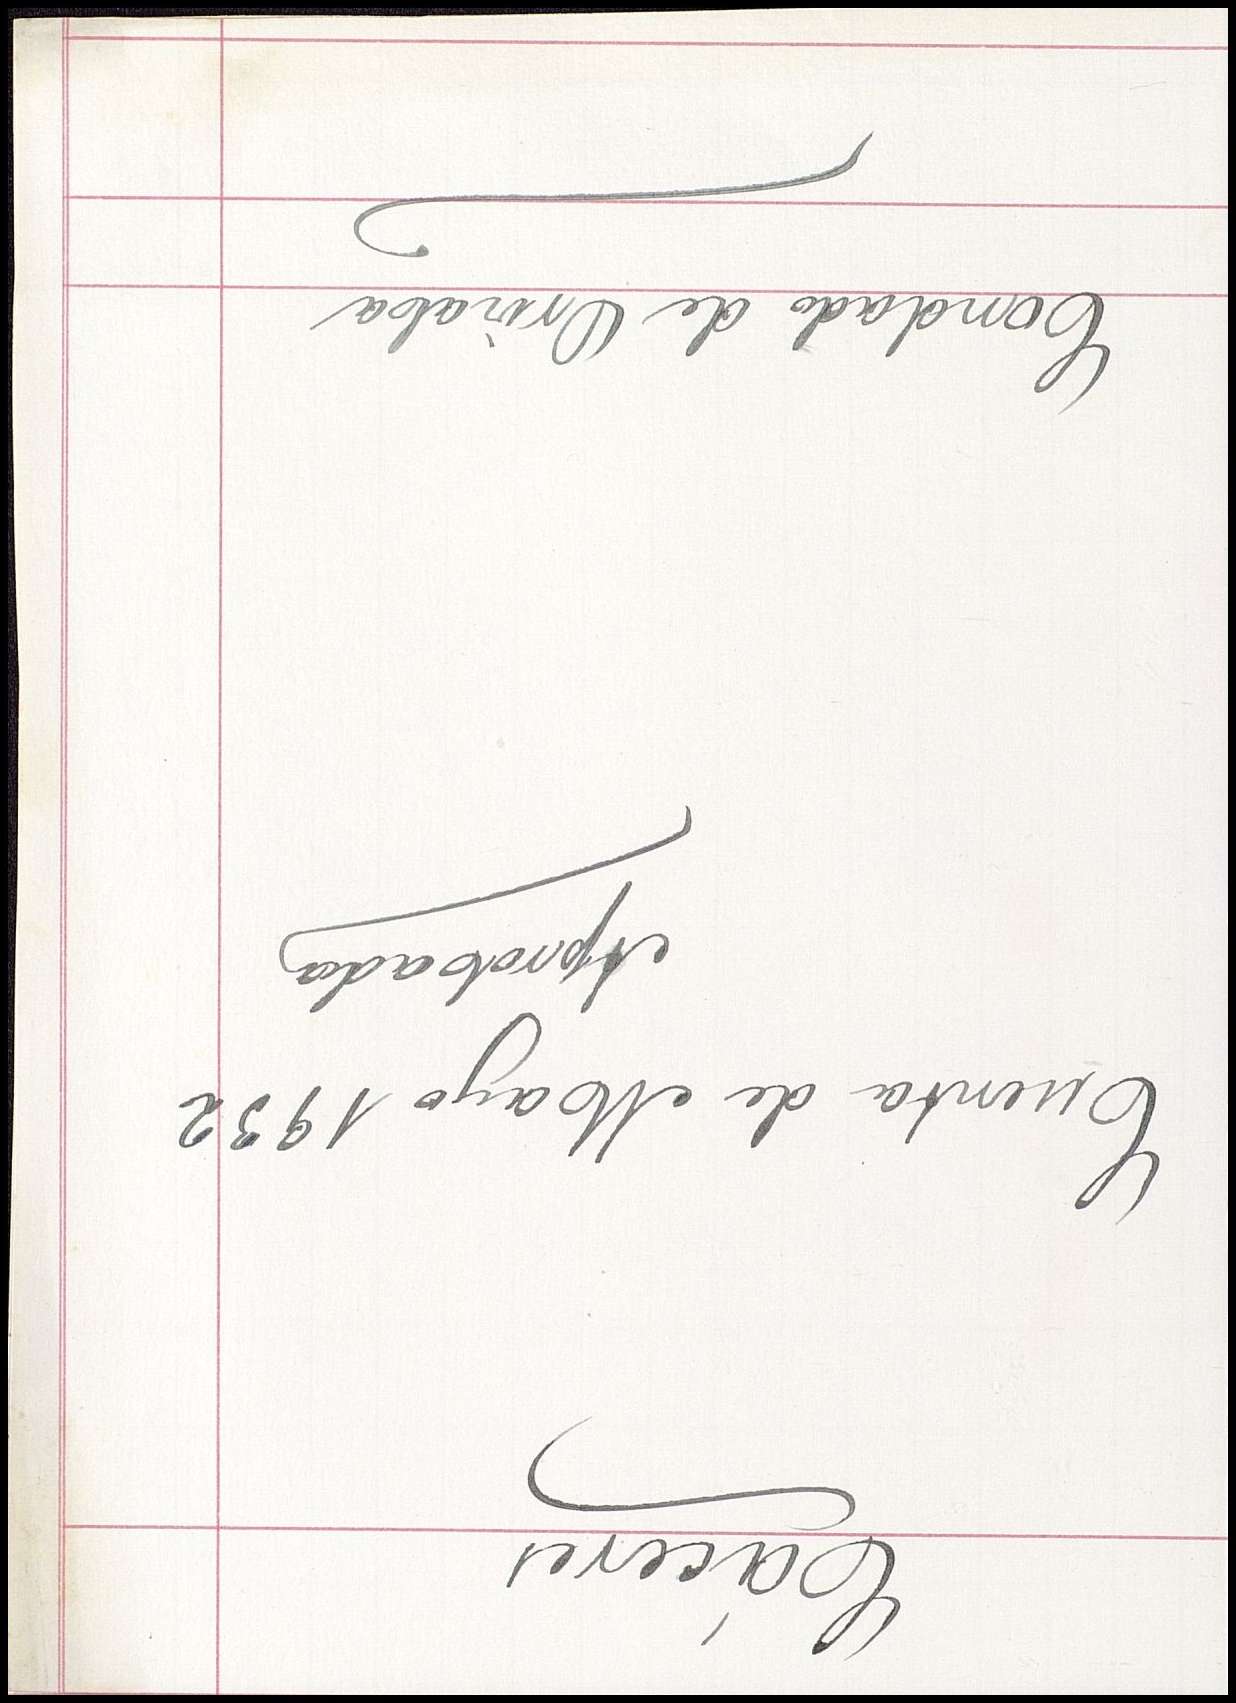 Cáceres
Cuenta de Mayo 1932
Aprobada
Condado de Orizaba